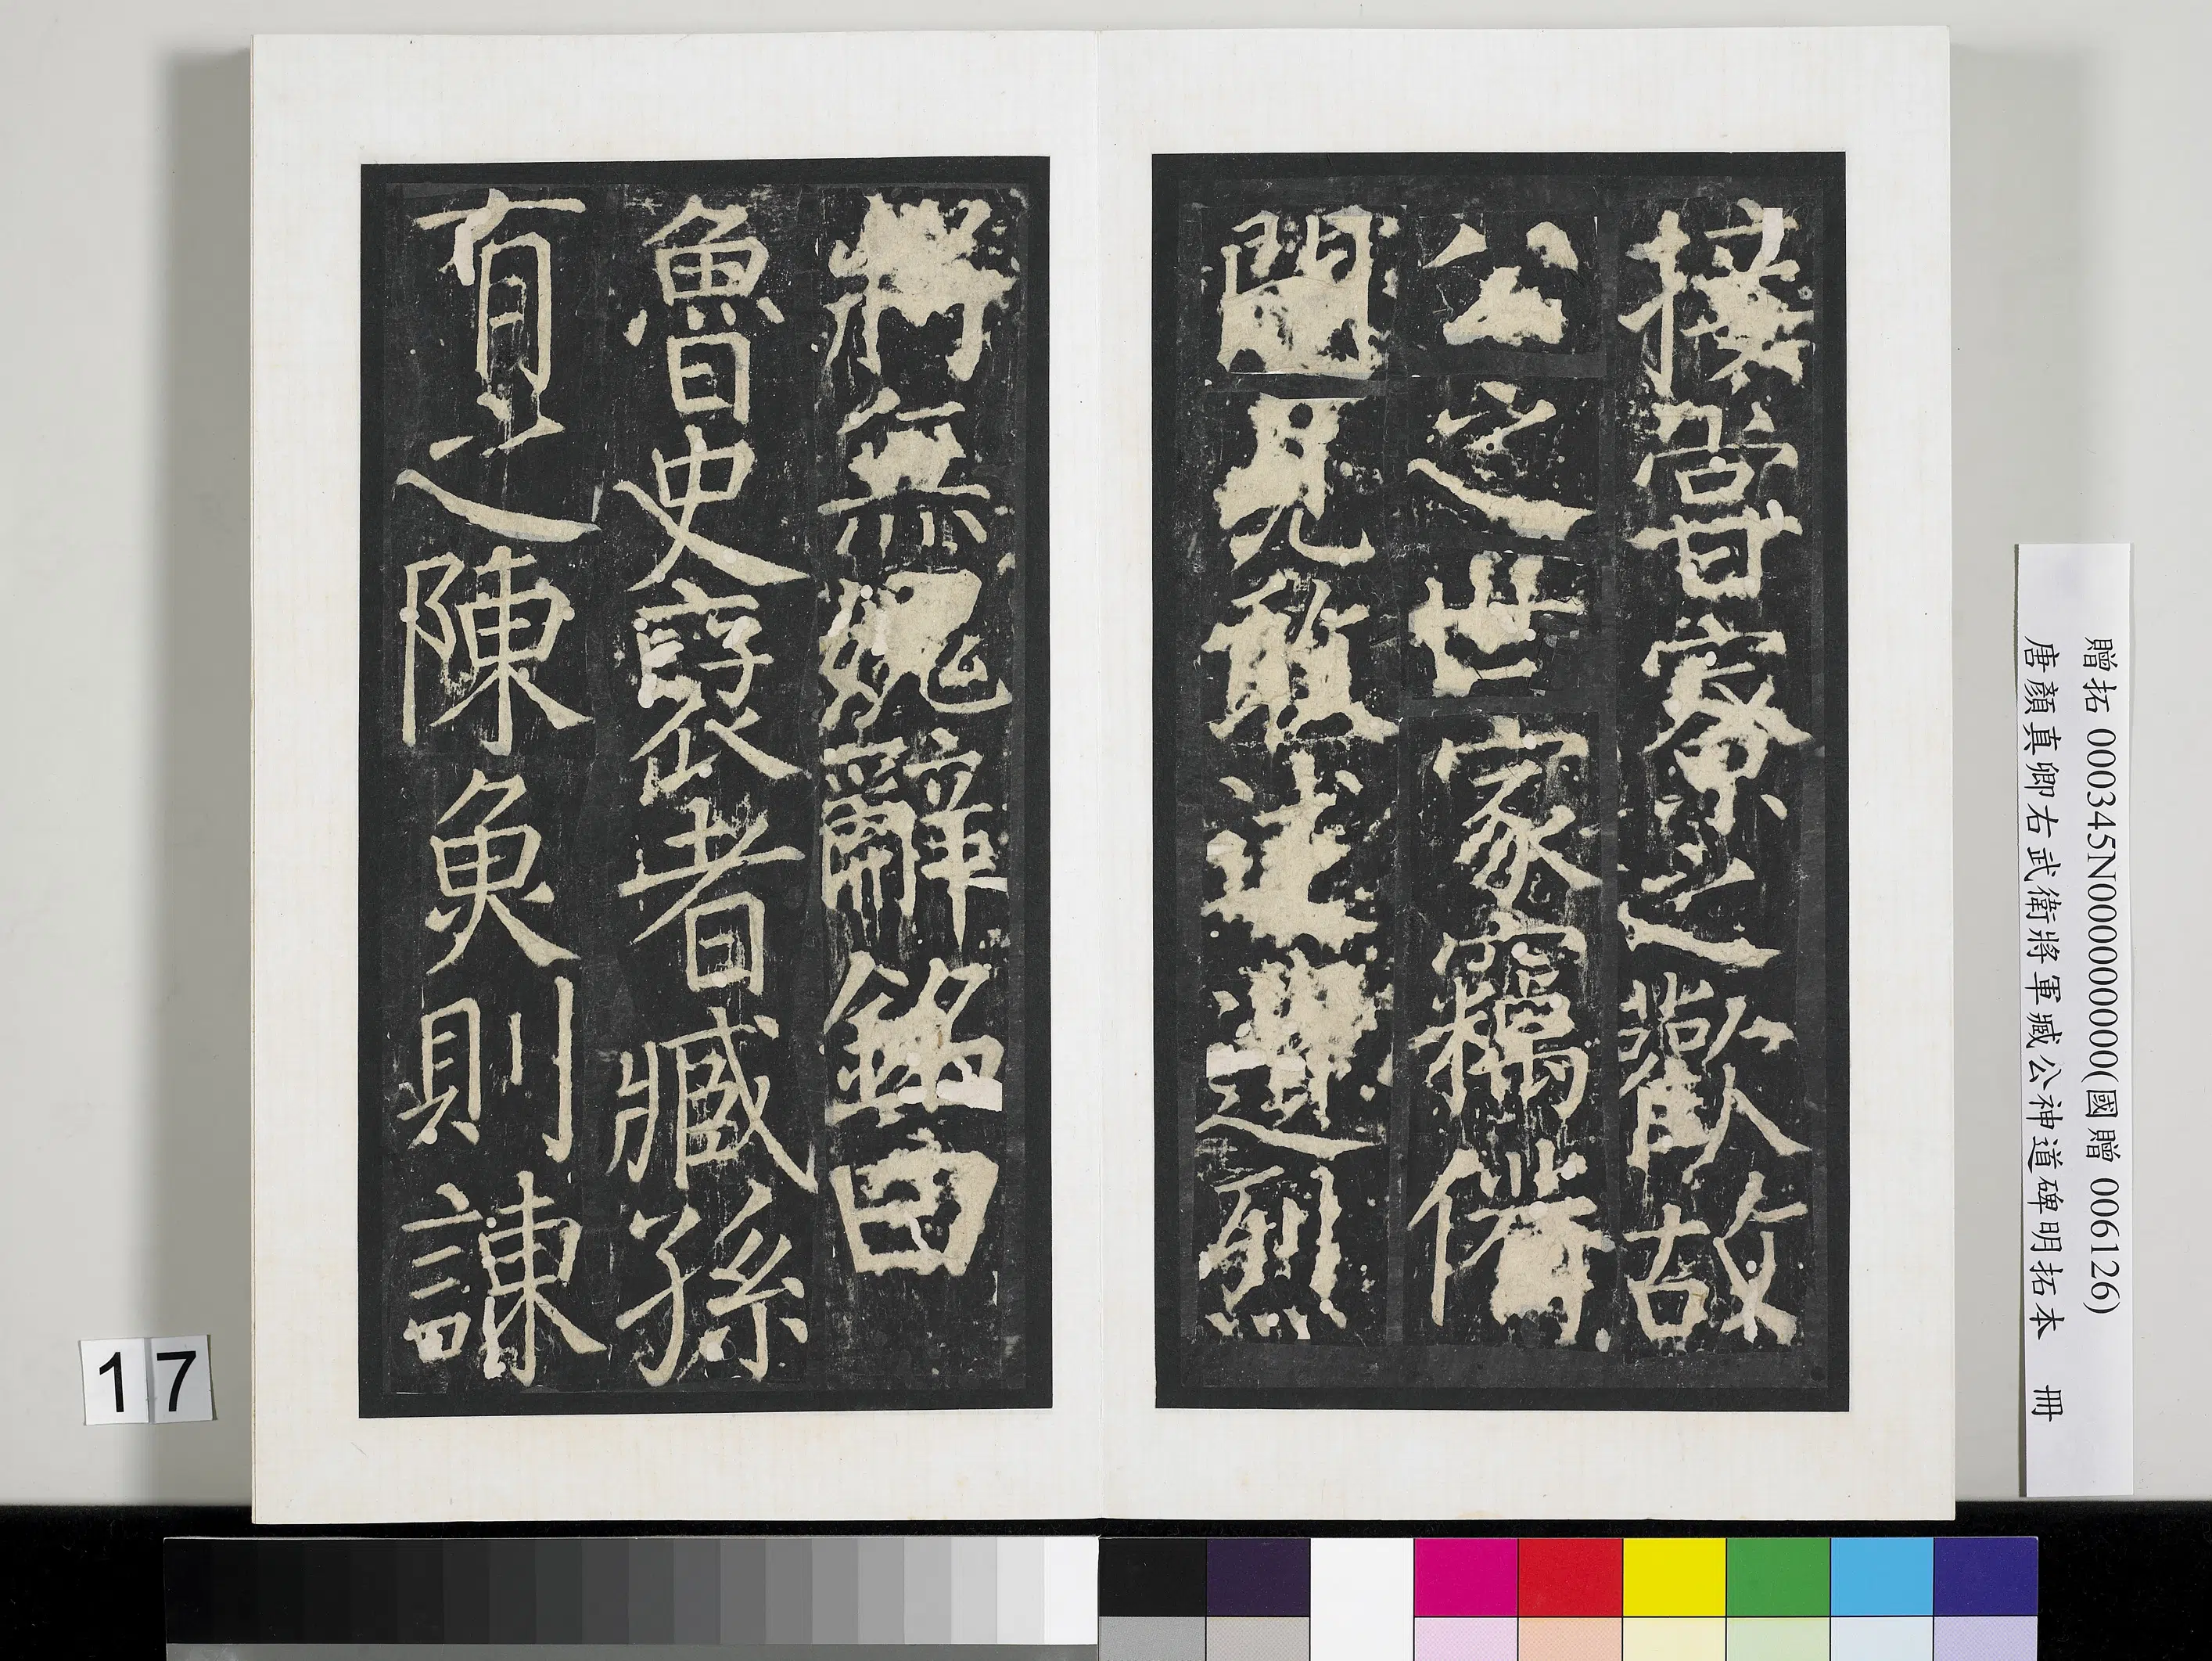 接甞寮之歡故
公之世家竊備
聞見敢述遺烈
將無媿辭銘曰
魯史襃者臧孫
有之陳魚則諫
贈拓 000345N000000000(國贈 006126)
唐顏真卿右武衛將軍臧公神道碑明拓本 冊
17